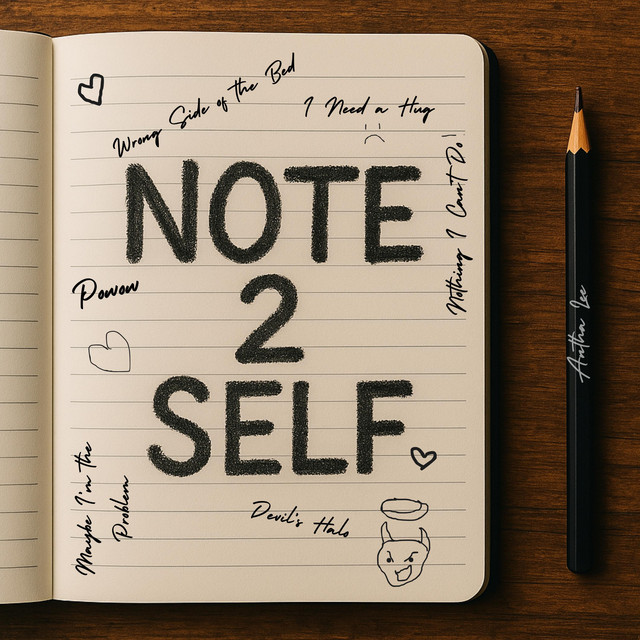 Wrong Side of the Bed
I Need a Hug
Nothing I Can't Do!
NOTE
2
SELF
Powow
Maybe I'm the
Problem
Devil's Halo
Antha Lee